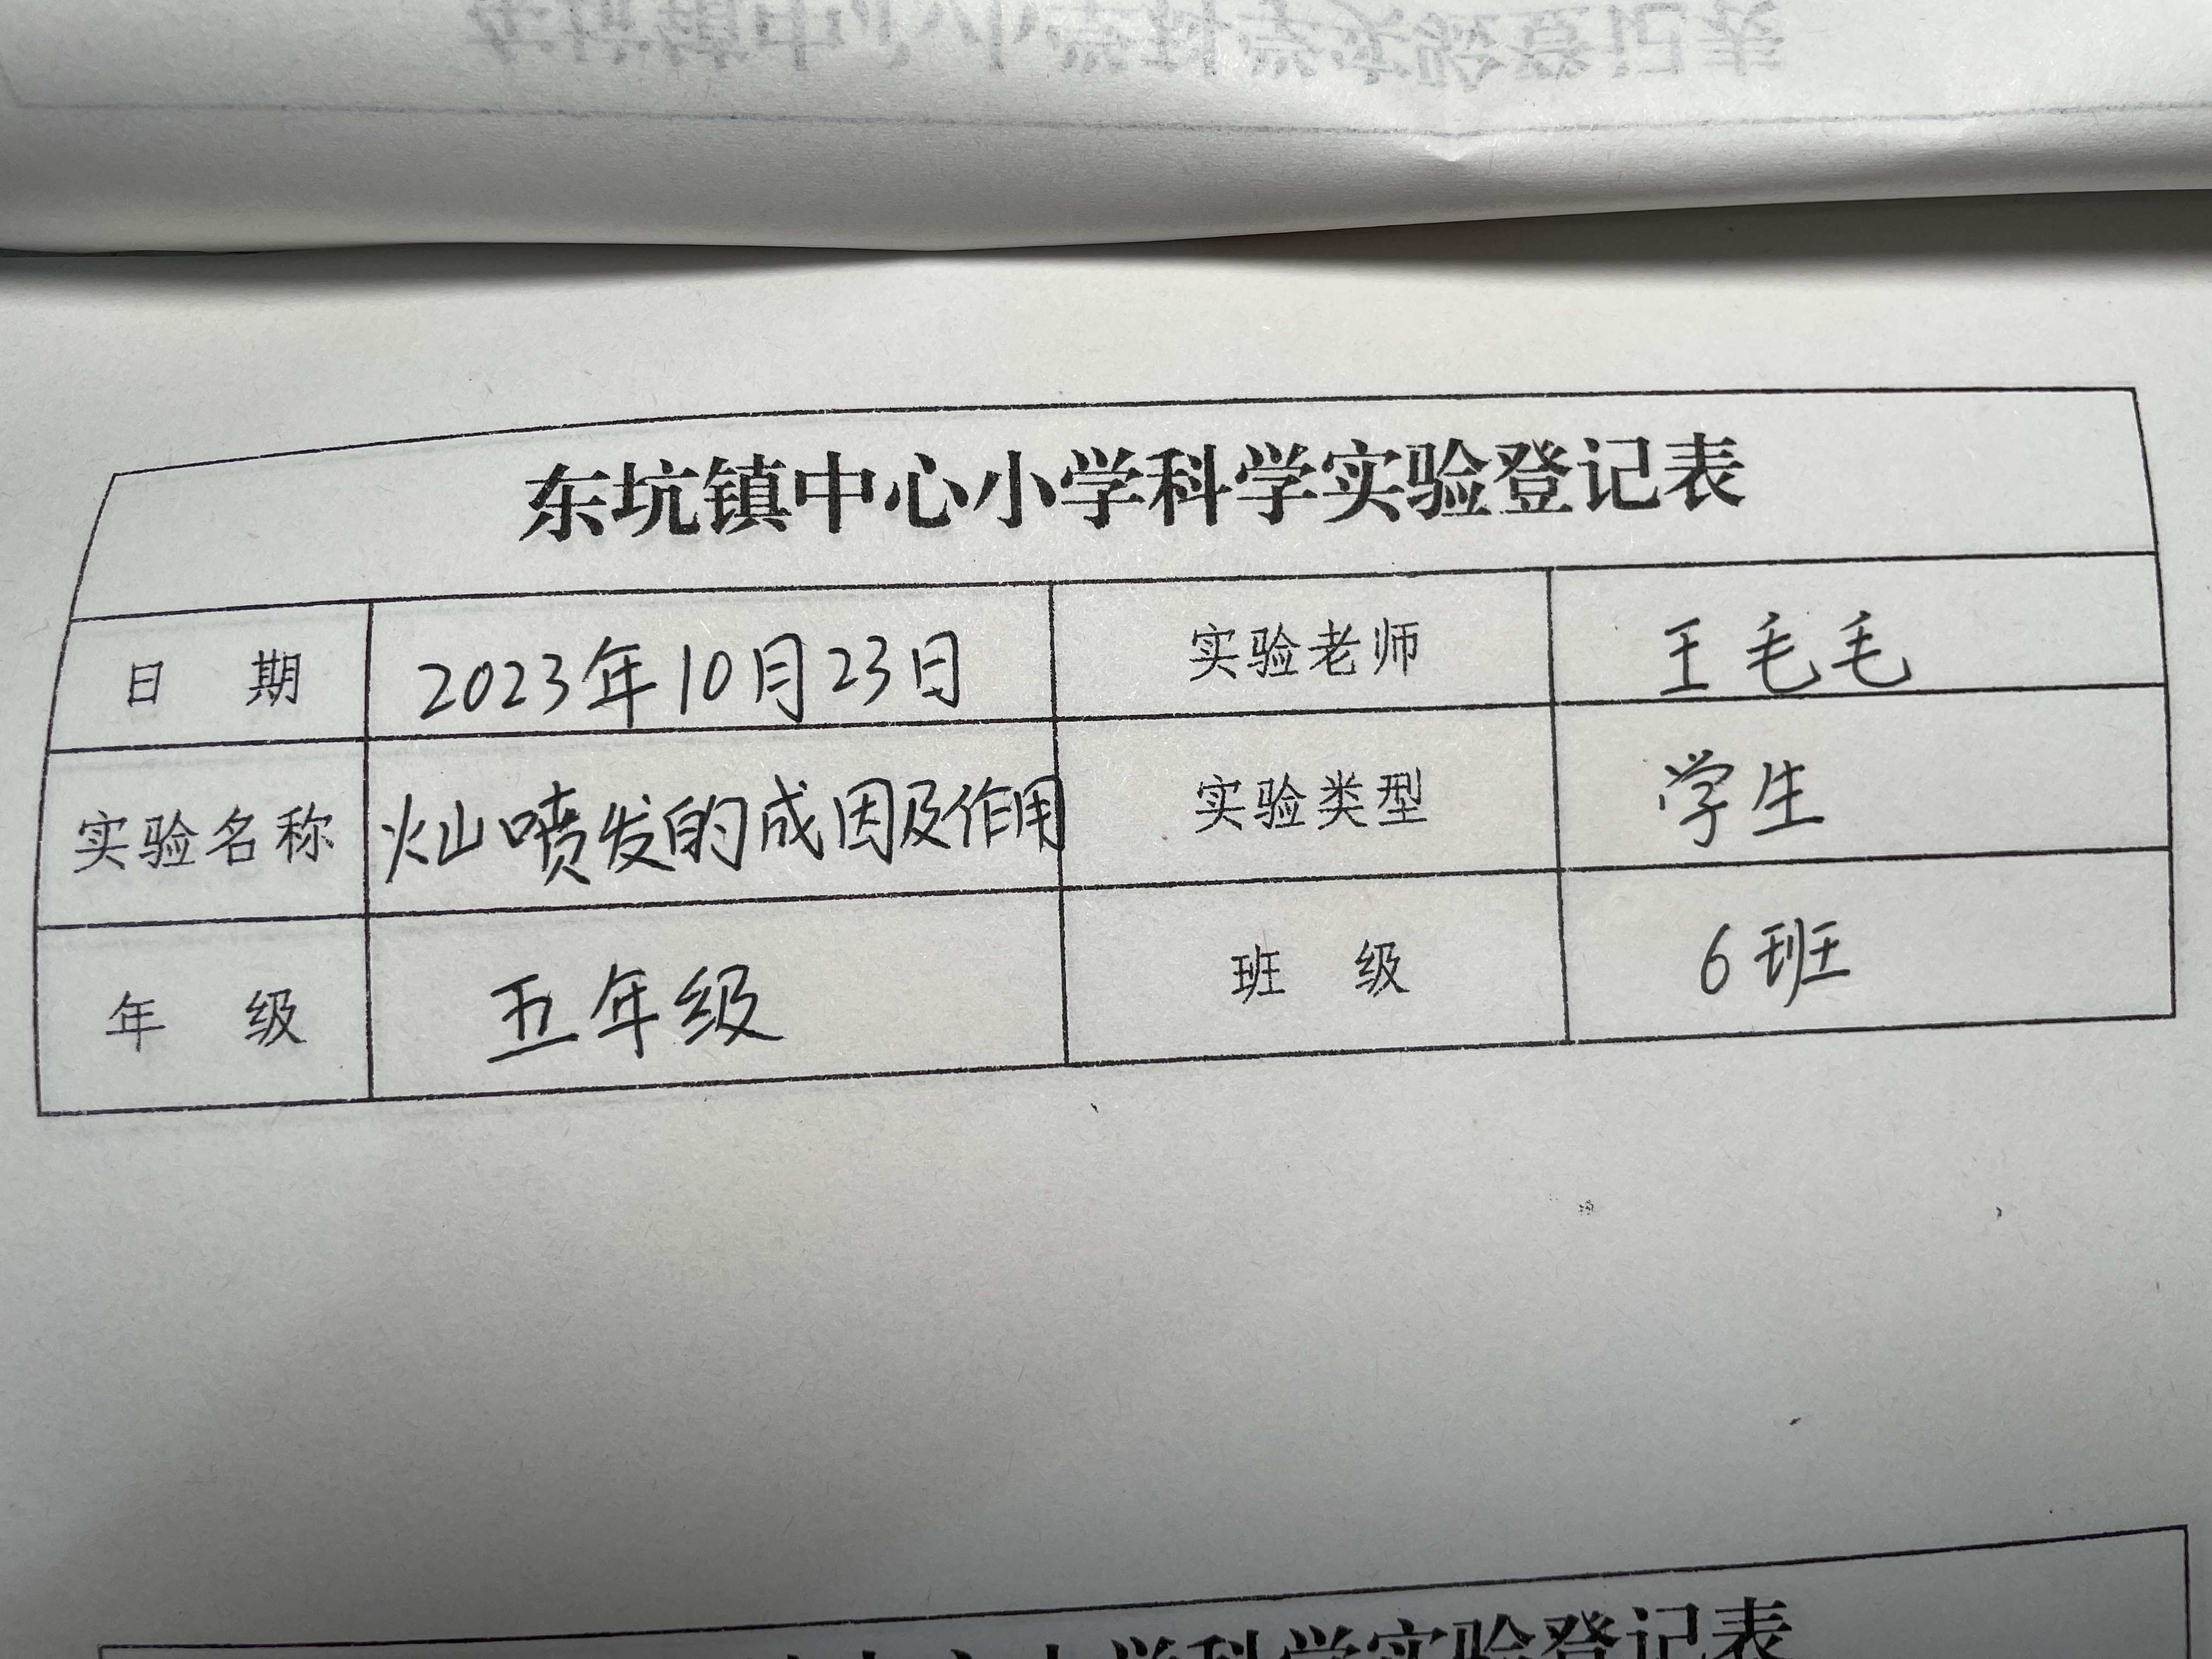 东坑镇中心小学科学实验登记表
日 期 2023年10月23日 实验老师 王毛毛
实验名称 火山喷发的成因及作用 实验类型 学生
年 级 五年级 班 级 6班
小学科学实验登记表